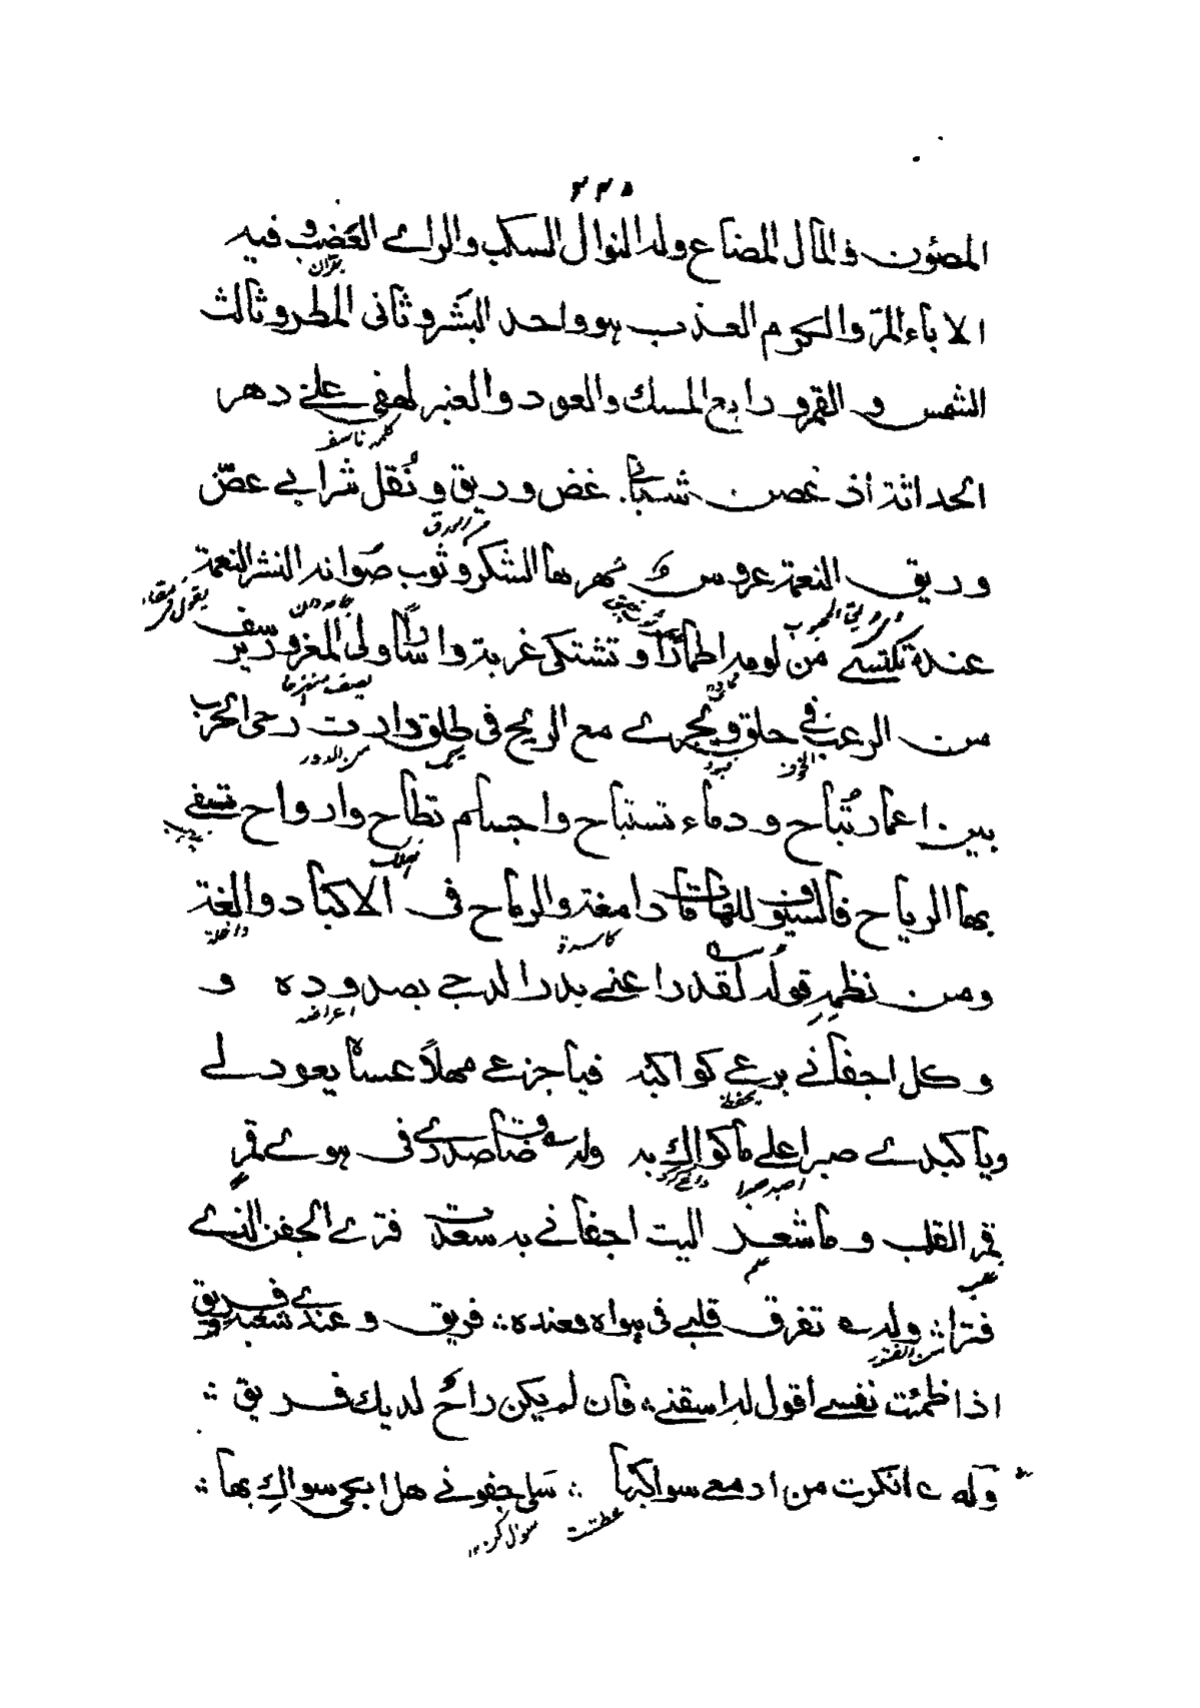 ٢٢٥
المصئون والمال المضاع وله النوال السكب والراى العضب وفيه
الاباء المرّ والكرم العذب هو واحد البشر وثانى المطر وثالث
الشمس و القمر و رابع المسك والعود والعنبر لهفى على دهر
كلمه تاسف
الحداثة اذ غصن شبابى غض وريق ونُقل شرابى عضّ
وريق النعمة عروس مُهرها الشكر وثوب صوانه النشر النعمة
عنده تكتسى من لومه اطمارًا وتشتكى غربة واسارًا ولى المغرور يرسف
من الرعب فى حلق ويجرى مع الريح فى طلق دارت رحى الحرب
من الدور
بين اعمار تُباح ودماء تستباح واجسام تطاح وارواح تسفى
بها الرياح فالسيوف للهامات دامغة والرماح فى الاكباد والغة
ومن نظمه قوله لقد راعنى بدر الدجى بصدوده و
اعراضه
وكل اجفانى برعى كواكبه فيا جزعى مهلاً عساه يعود لى
ويا كبدى صبرا على ما كواك به وله ضاق صدرى فى هوى قمر
اصبر صبرا
قمر القلب وما شعر اليت اجفانى به سعدت فترى الجفن الذى
علم
فترا وله تفرق قلبى فى هواه فعنده فريق وعندى شعبة وفريق
من الفتور
اذا ظمئت نفسى اقول له اسقنى فان لم يكن راحٌ لديك فريق
وله انكرت من ادمعى سواكبها سلى جفونى هل ابكى سواك بها
عطشت